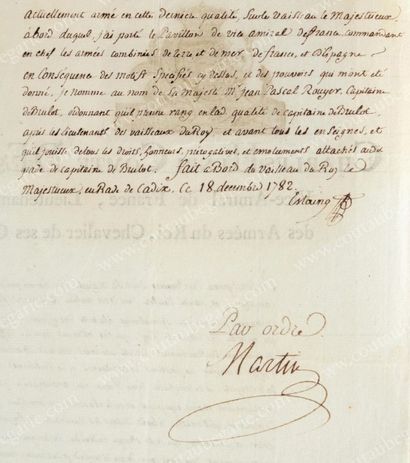 actuellement armé en cette derniere qualité, sur le vaisseau le Majestueux,
à bord duquel, j'ai porté le Pavillon de vice amiral de france, commandant
en chef les armées combinées de terre et de mer de france, et d'Espagne
en Consequence des motifs specifiés cy dessus, et des pouvoirs qui m'ont eté
donné, je nomme au nom de Sa majesté M. jean Pascal Rouyer, Capitaine
de Brulot, ordonnant qu'il prenne rang en lad. qualité de capitaine de Brulot
après les lieutenants des vaisseaux du Roy et avant tous les enseignes, et
qu'il jouisse de tous les droits, honneurs, prérogatives, et émoluments attachés au d.
grade de capitaine de Brulot. fait à Bord du vaisseau du Roy le
Majestueux, en Rade de Cadix, Ce 18. decembre 1782.
Estaing
Vice-Amiral de France, Lieutenant
des Armées du Roi, Chevalier de ses O
Par ordre
Martin